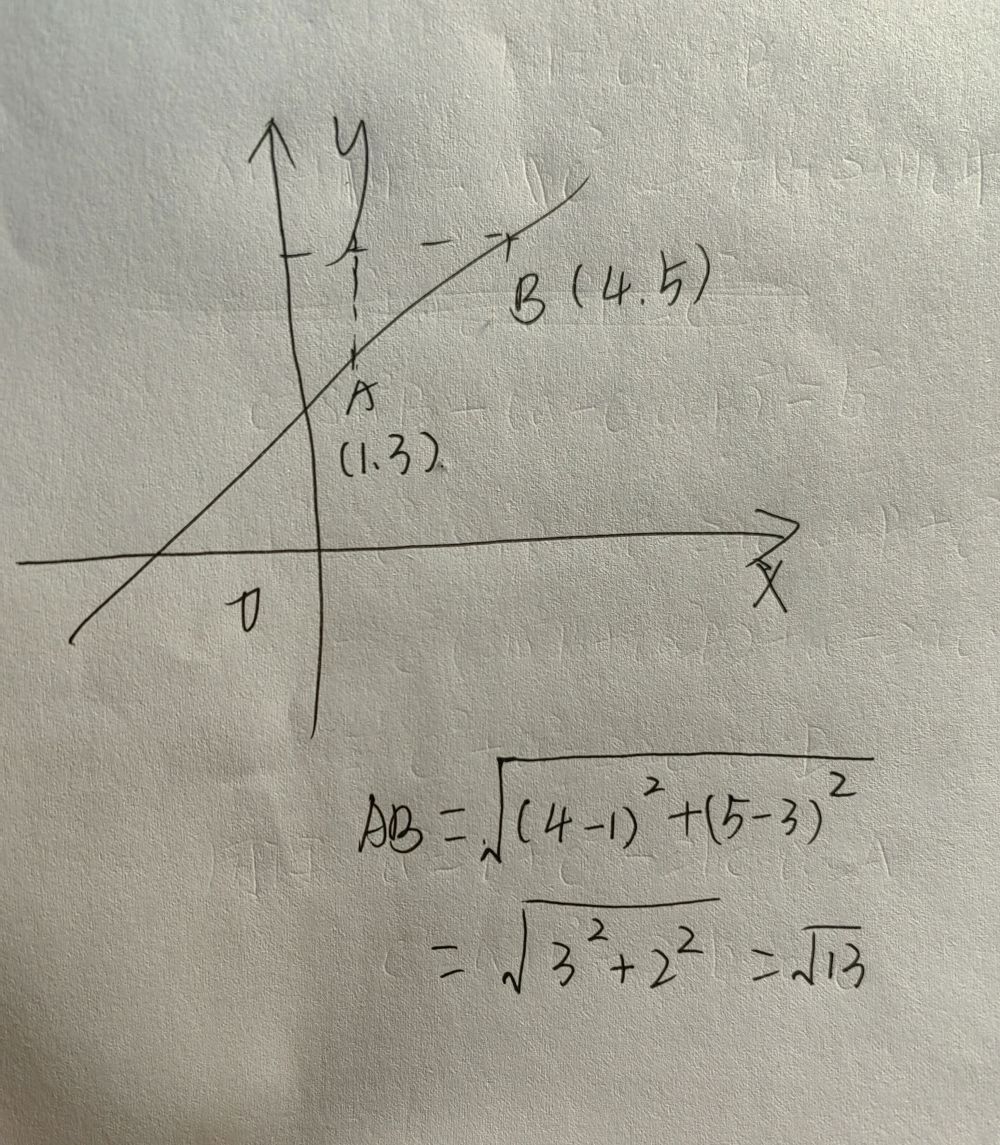 y
B (4.5)
A
(1.3).
O
X
AB = √((4-1)² + (5-3)²)
= √(3² + 2²) = √13